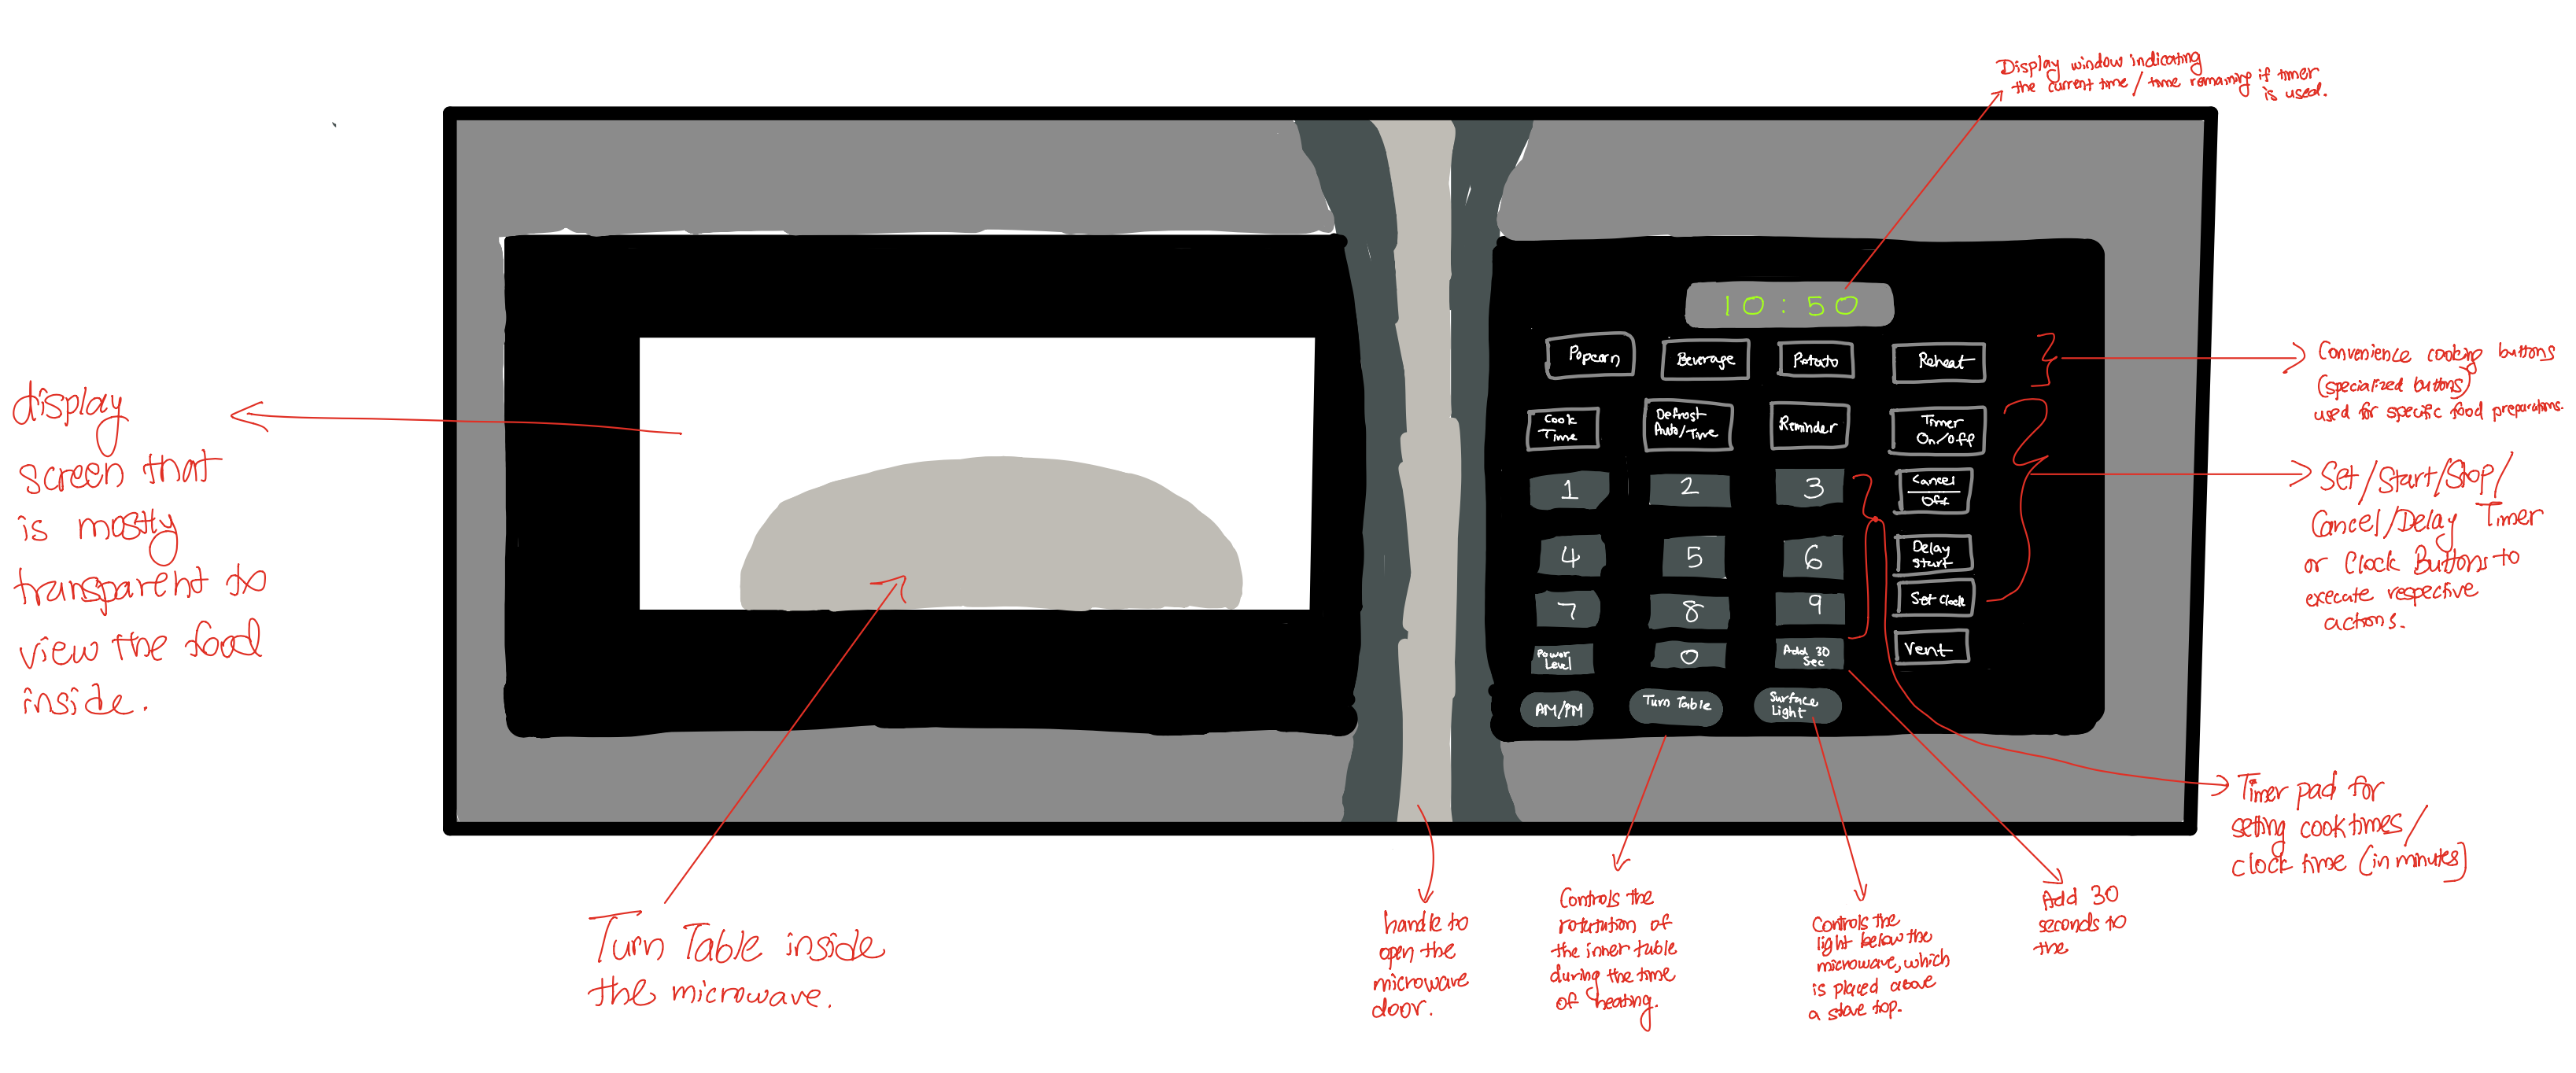 Display window indicating
the current time / time remaining if timer
is used.
10:50
Popcorn
Beverage
Potato
Reheat
Cook
Time
Defrost
Auto/Time
Reminder
Timer
On/Off
1
2
3
Cancel
Off
4
5
6
Delay
Start
7
8
9
Set Clock
Power
Level
0
Add 30
Sec
Vent
AM/PM
Turn Table
Surface
Light
display
screen that
is mostly
transparent to
view the food
inside.
Convenience cooking buttons
(specialized buttons)
used for specific food preparations.
Set/Start/Stop/
Cancel/Delay Timer
or Clock Buttons to
execute respective
actions.
Timer pad for
seting cook times/
clock time (in minutes)
Turn Table inside
the microwave.
handle to
open the
microwave
door.
Controls the
rotutution of
the inner table
during the time
of heating.
Controls the
light below the
microwave, which
is placed above
a stove top.
Add 30
seconds to
the